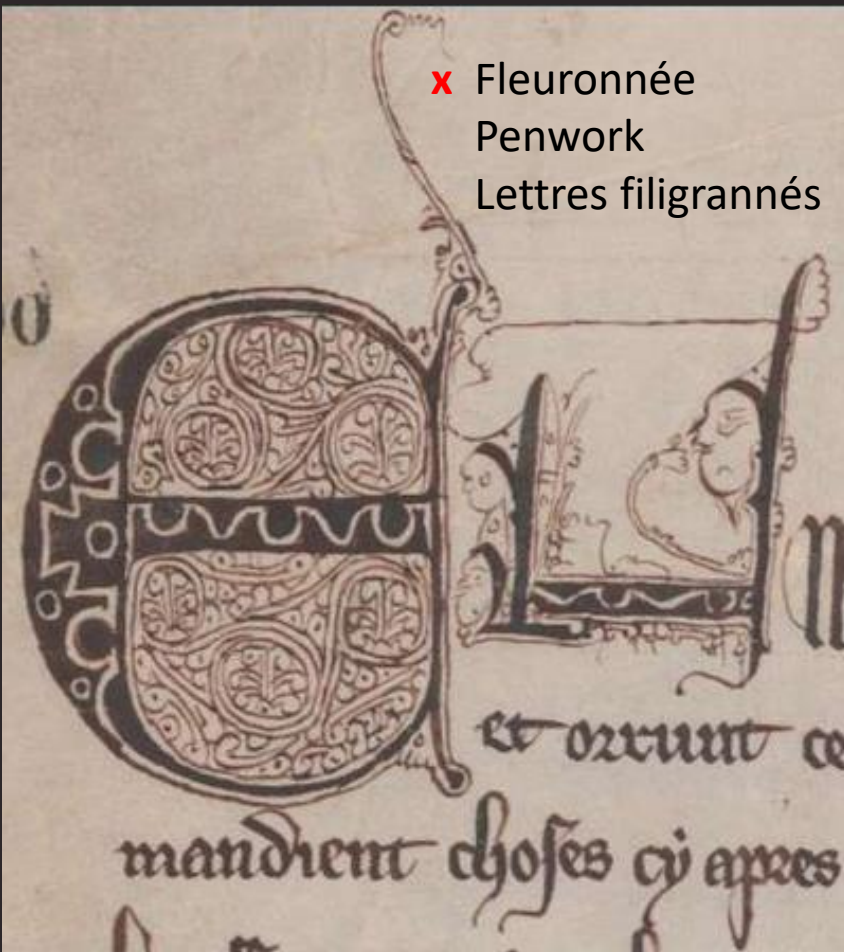 x Fleuronnée
Penwork
Lettres filigrannés
E
et orrunt ce
mandient choses cy apres